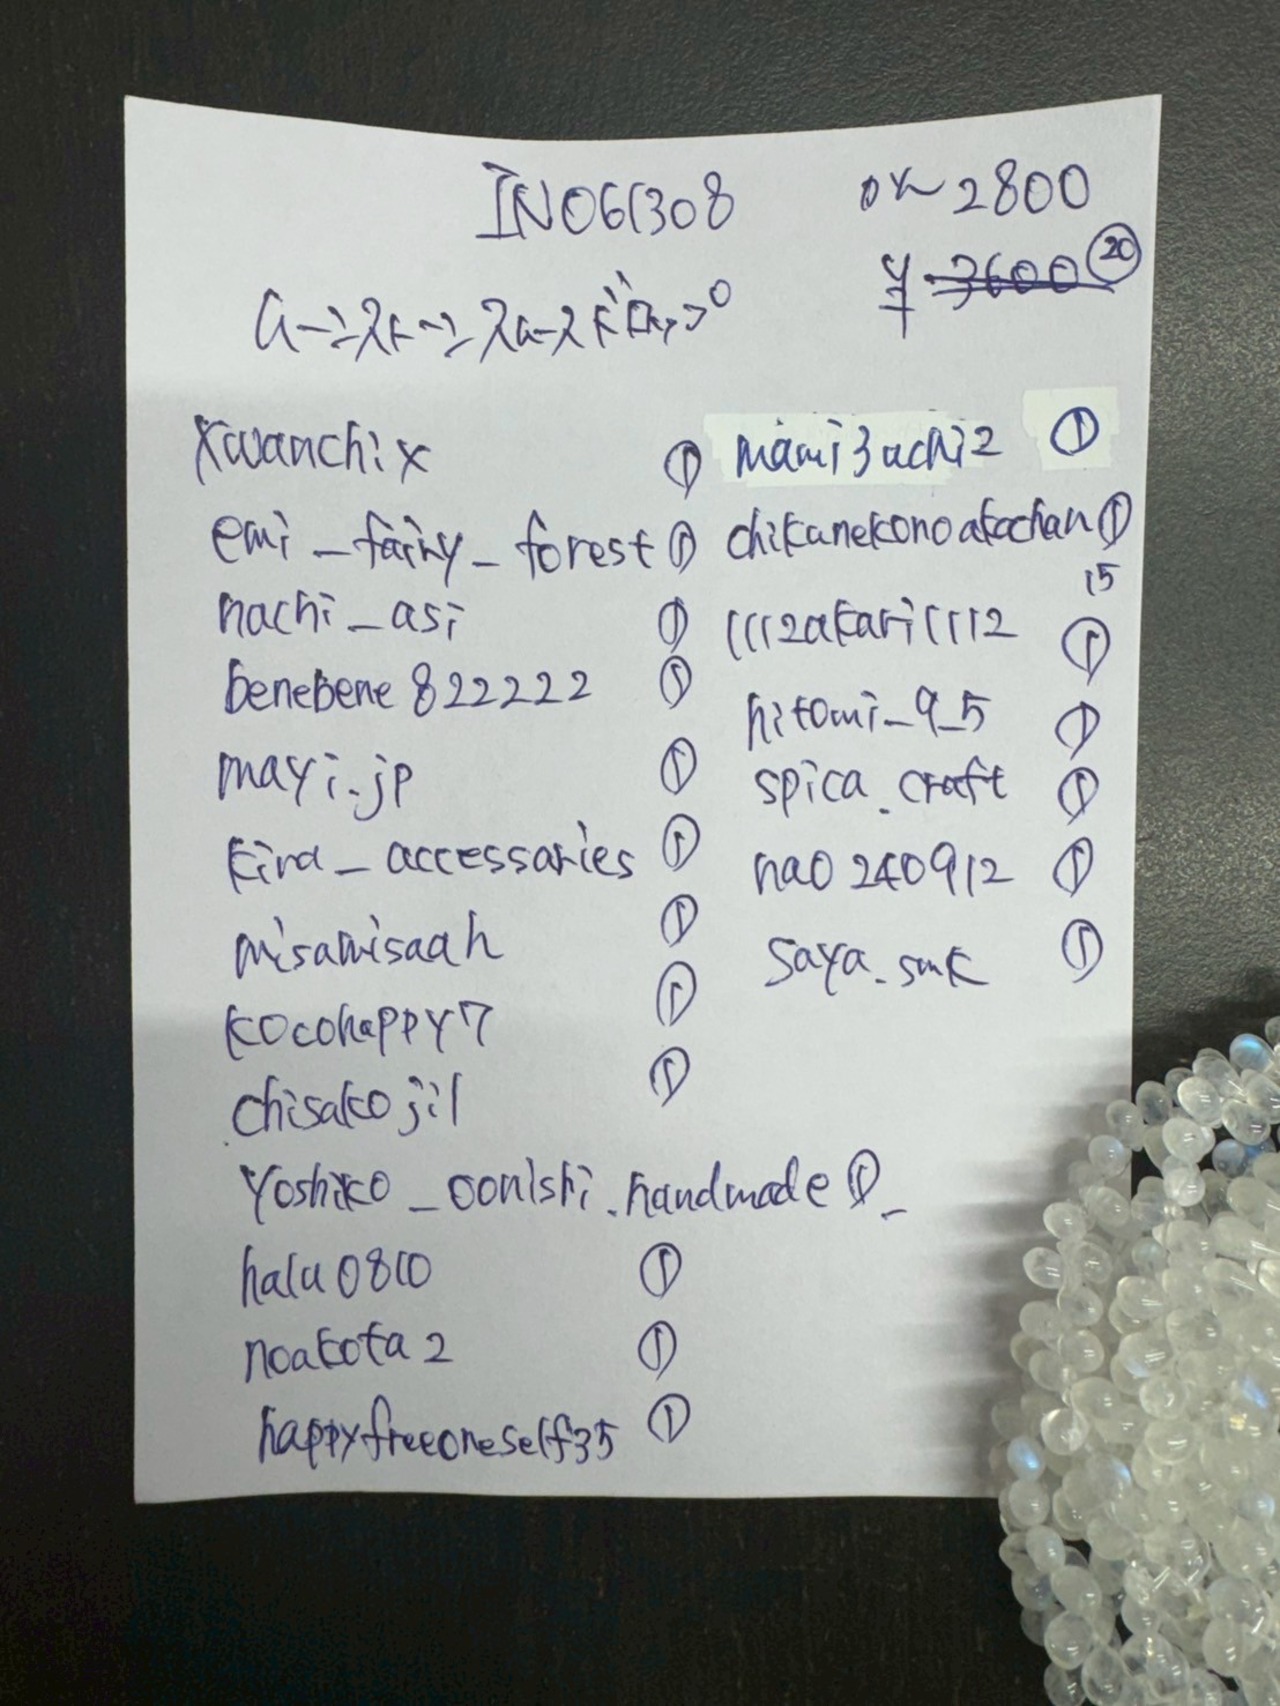 IN061308
2800
¥ 3600 20
xwanchix ①
emi_fairy_forest ①
nachi_asi ①
benebene822222 ①
mayi.jp ①
kira_accessaries ①
misamisaah ①
kocohappy7 ①
chisakojil ①
yoshiko_oonishi.handmade ①
halu0810 ①
noakota2 ①
happyfreeoneself35 ①
mami3uchi2 ①
chikanekonoakachan ①
15
1112akari11112 ①
hitomi_9_5 ①
spica.craft ①
nao240912 ①
saya.smk ①